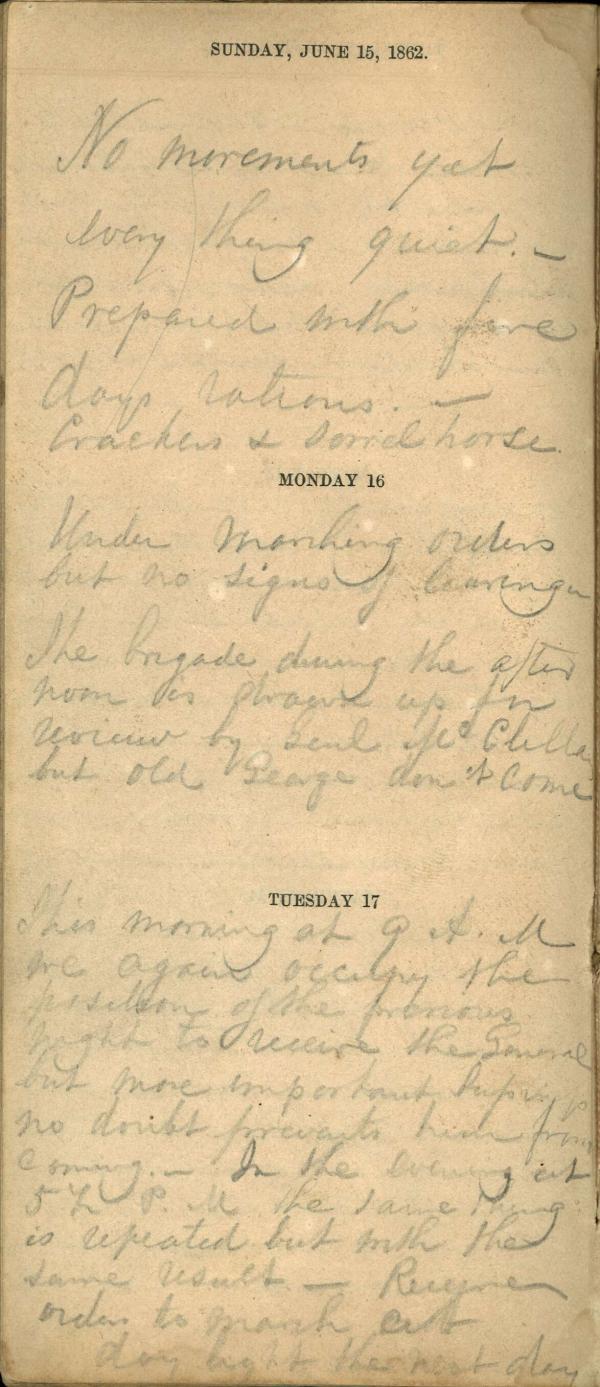 SUNDAY, JUNE 15, 1862.
No movements yet
every thing quiet. —
Prepared with five
days rations. —
Crackers & Sorrel horse.
MONDAY 16
Under marching orders
but no signs of leaving
The brigade during the after
noon is drawn up for
review by Genl McClella
but old George don't Come
TUESDAY 17
This morning at 9 A. M
we again occupy the
position of the previous
night to receive the General
but more important
no doubt prevents him from
coming. — In the evening at
5 P. M the same thing
is repeated but with the
same result — Receive
orders to march at
day light the next day